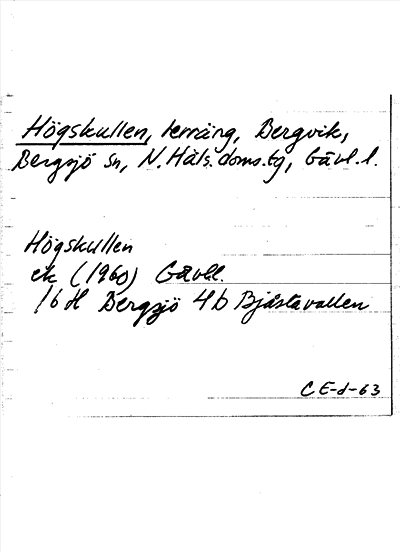 Högskullen, terräng, Bergvik,
Bergsjö sn, N. Häls. doms.tg, Gävl. l.
Högskullen
ek (1960) Gävll.
16 H Bergsjö 4 b Bjåstavallen
C E-d-63